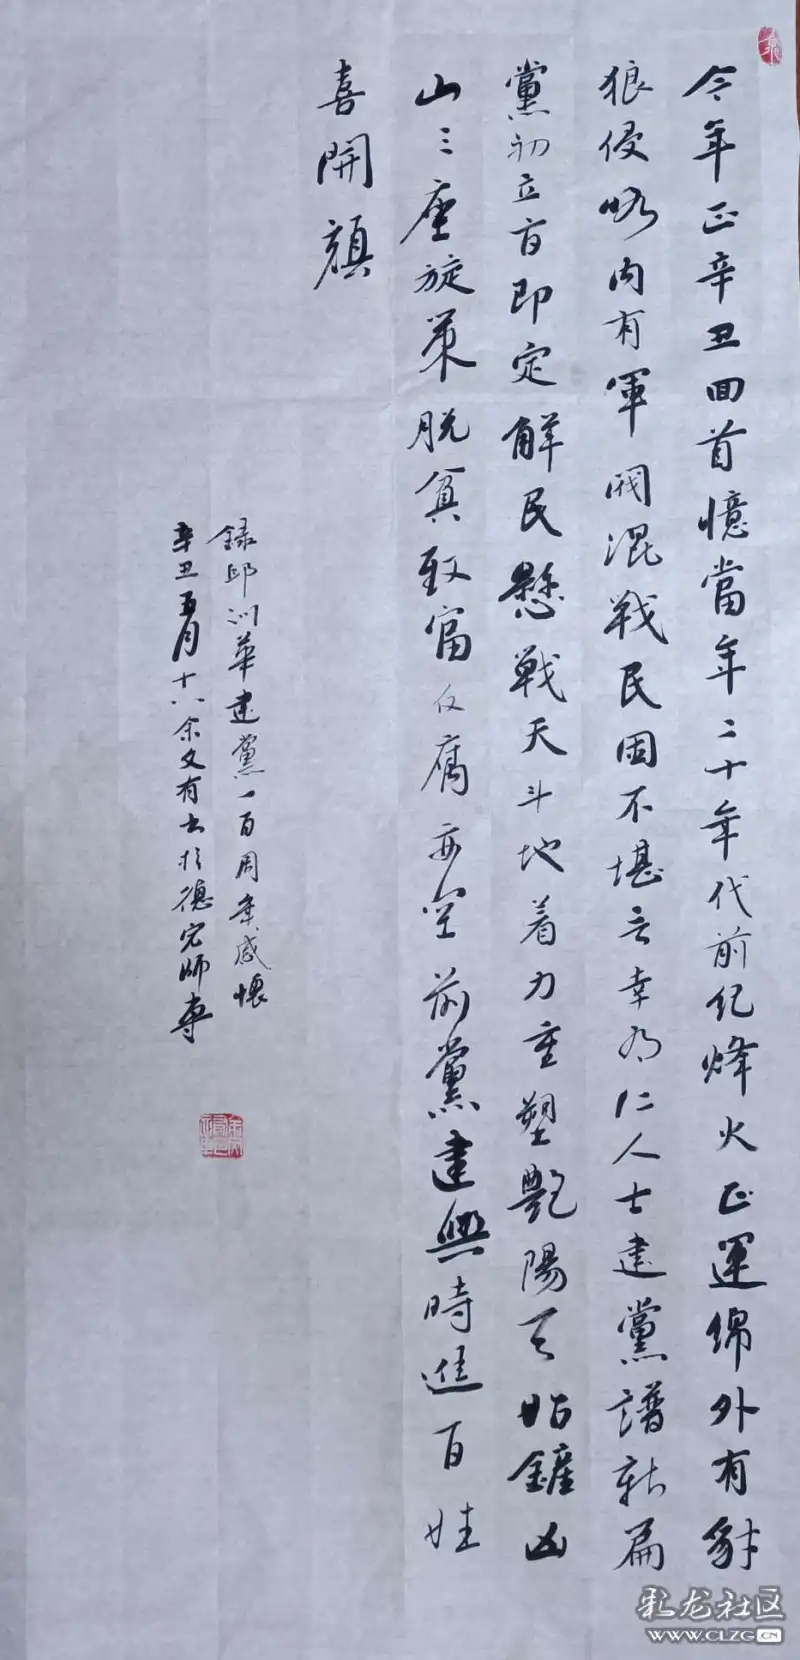 今年正辛丑回首憶當年二十年代前纪烽火正運綿外有豺
狼侵略内有軍阀混戦民困不堪言幸有仁人士建黨譜新篇
黨初立盲即定解民懸戦天斗地着力重塑艷陽天始鏟凶
山三座旋策脱貧致富反腐亦空前黨建與時進百姓
喜開顔
録邱训華建黨一百周年感懷
辛丑五月十八余文有书於德宏師專
彩龙社区
WWW.CLZG.CN